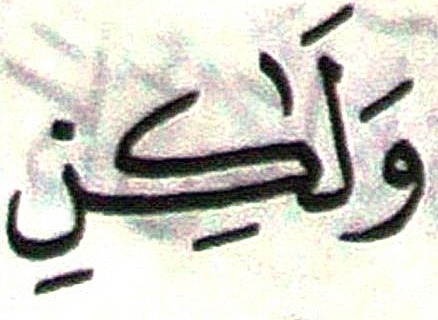 وَلَٰكِنِ